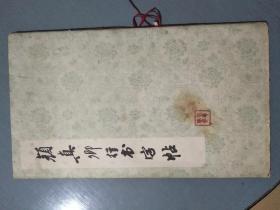 颜真卿住书字帖